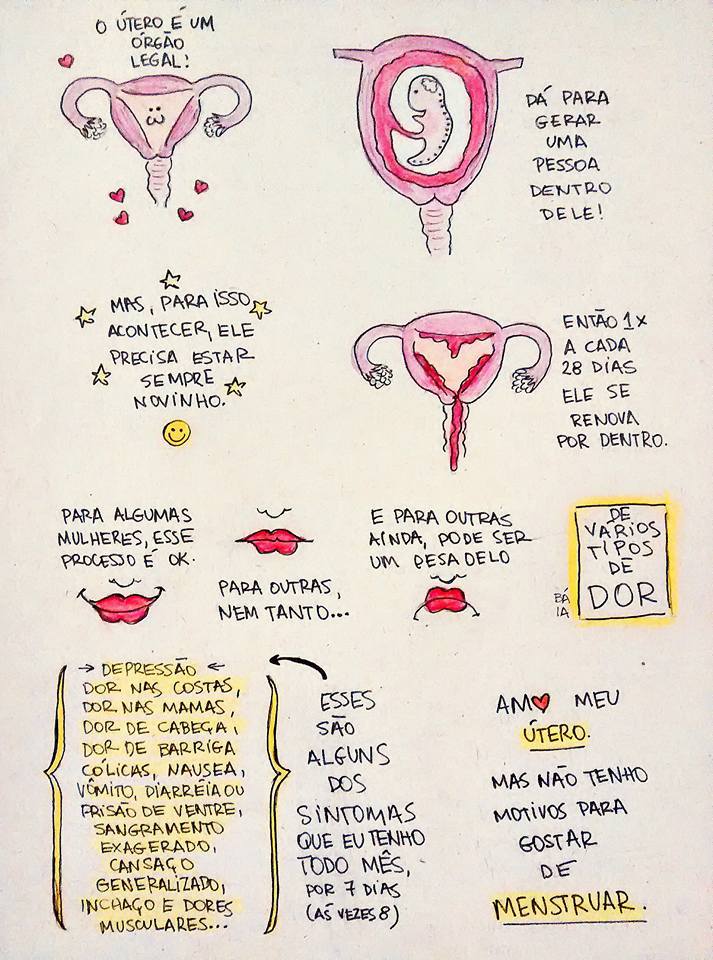 O ÚTERO É UM
ÓRGÃO
LEGAL!
DÁ PARA
GERAR
UMA
PESSOA
DENTRO
DELE!
MAS, PARA ISSO
ACONTECER, ELE
PRECISA ESTAR
SEMPRE
NOVINHO.
ENTÃO 1X
A CADA
28 DIAS
ELE SE
RENOVA
POR DENTRO.
PARA ALGUMAS
MULHERES, ESSE
PROCESSO É OK.
PARA OUTRAS,
NEM TANTO...
E PARA OUTRAS
AINDA, PODE SER
UM PESADELO
DE
VÁRIOS
TIPOS
DE
DOR
BÁ
IA
→ DEPRESSÃO ←
DOR NAS COSTAS,
DOR NAS MAMAS,
DOR DE CABEÇA,
DOR DE BARRIGA
CÓLICAS, NAUSEA,
VÔMITO, DIARRÉIA OU
PRISÃO DE VENTRE,
SANGRAMENTO
EXAGERADO,
CANSAÇO
GENERALIZADO,
INCHAÇO E DORES
MUSCULARES...
ESSES
SÃO
ALGUNS
DOS
SINTOMAS
QUE EU TENHO
TODO MÊS,
POR 7 DIAS
(ÀS VEZES 8)
AM❤ MEU
ÚTERO.
MAS NÃO TENHO
MOTIVOS PARA
GOSTAR
DE
MENSTRUAR.